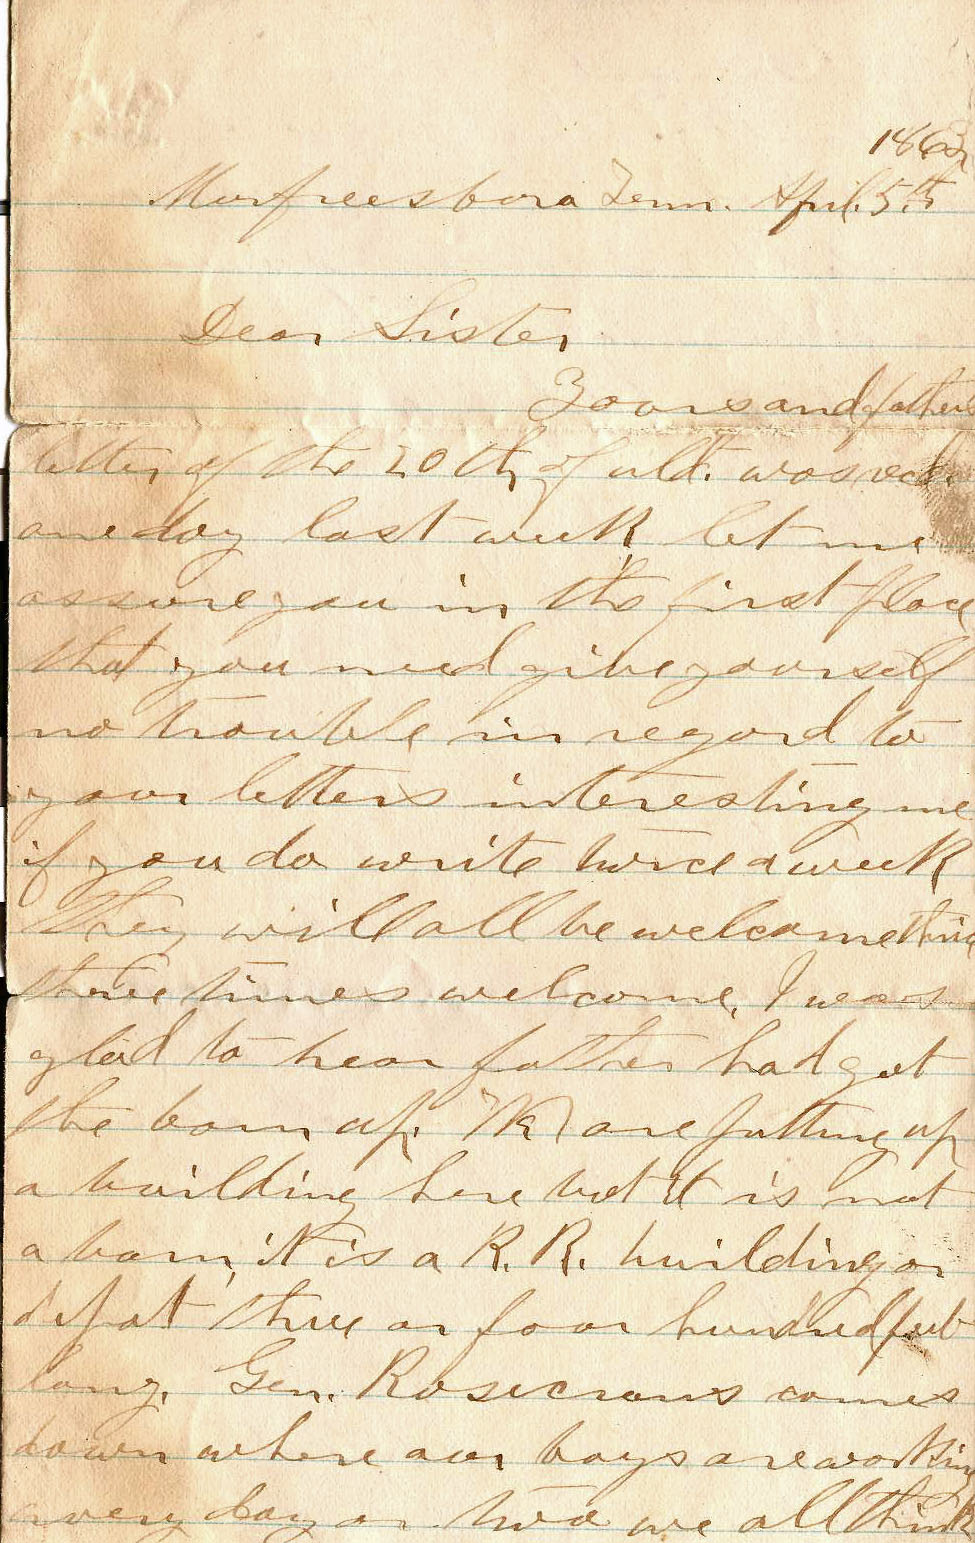 186
Murfreesboro Tenn. April. 5.th
Dear Sister
Yours and fathers
letter of the 20th of ult. was recd.
one day last week let me
assure you in the first place
that you need give yourself
no trouble in regard to
your letters interesting me
if you do write twice a week
they will all be welcome
three times welcome, I was
glad to hear father had got
the barn up. We are putting up
a building here but it is not
a barn, it is a R. R. building or
depot three or foor hundred feet
long. Gen. Rosecrans comes
down where our boys are working
every day or two we all think